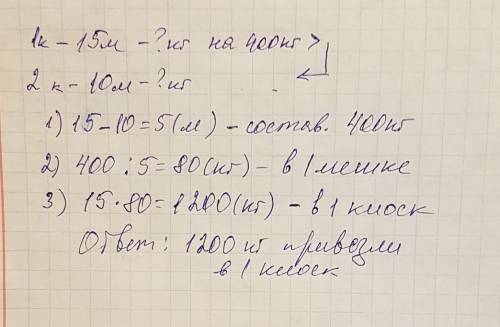 1к – 15м – ?кг на 400кг >
2к – 10м – ?кг
1) 15 – 10 = 5 (м) – состав. 400кг
2) 400 : 5 = 80 (кг) – в 1 мешке
3) 15 · 80 = 1200 (кг) – в 1 киоск
Ответ: 1200 кг привезли
в 1 киоск